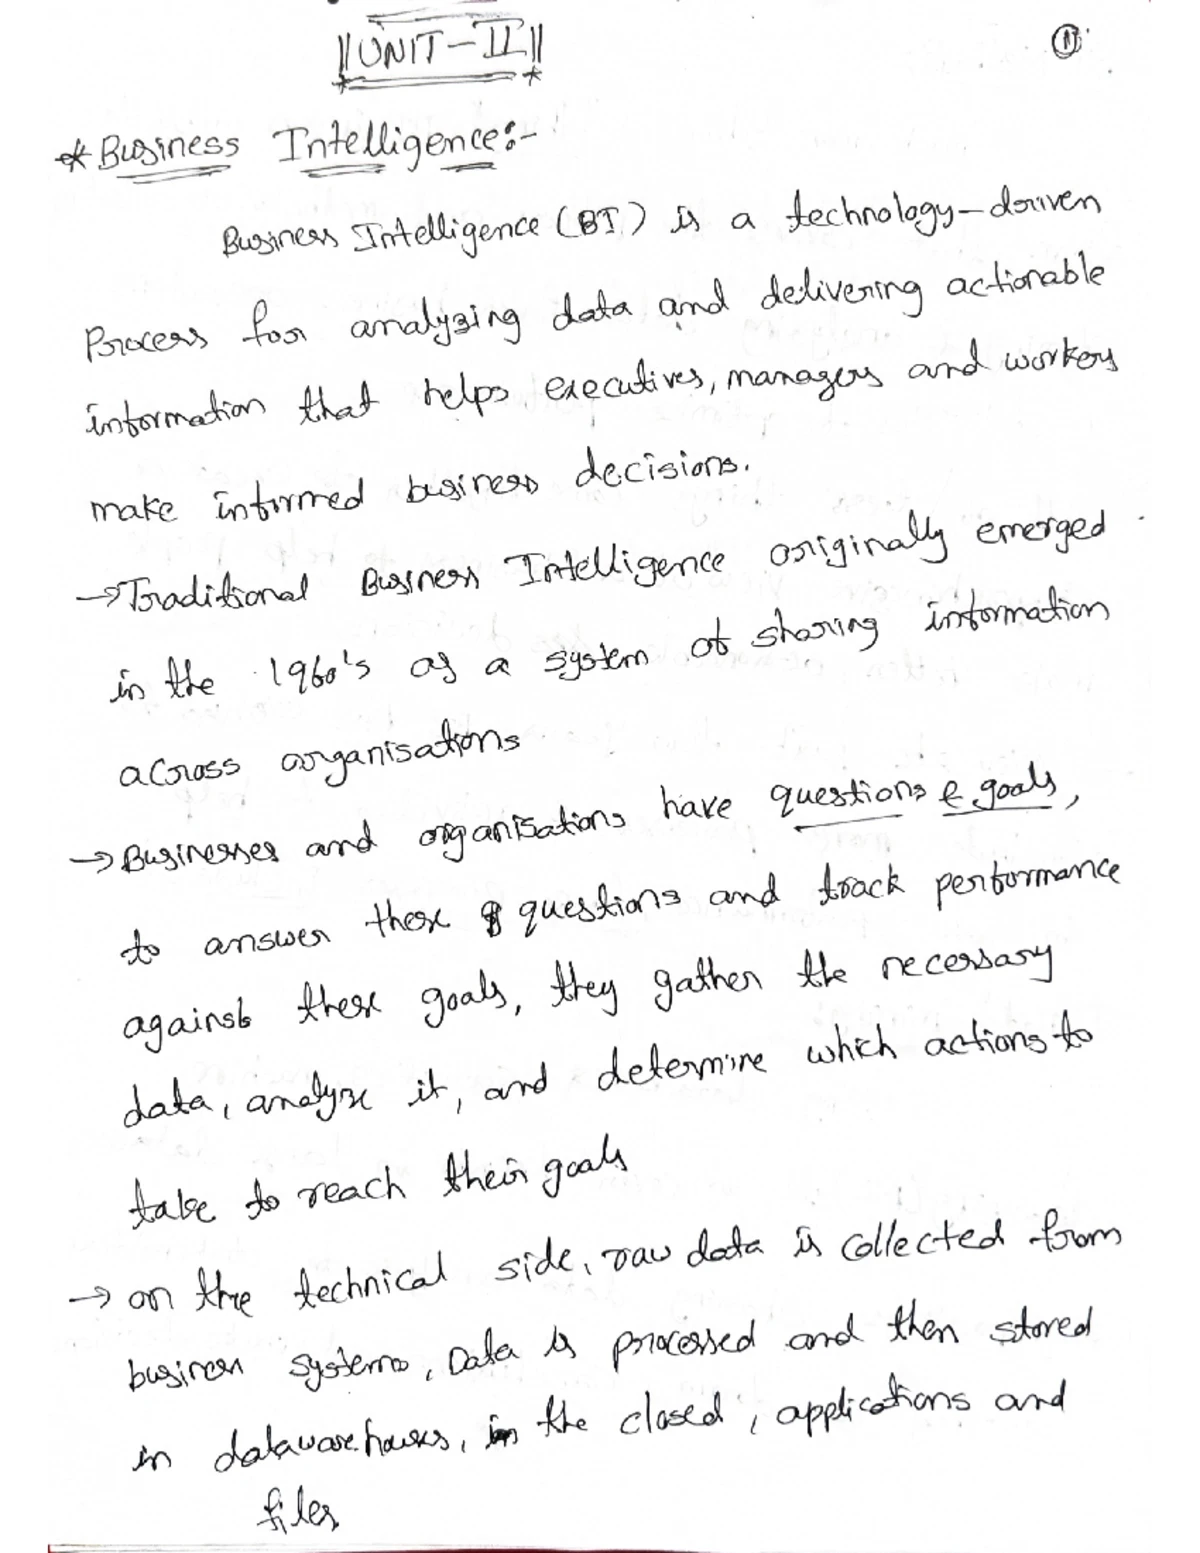 ||UNIT-II||
①
* Business Intelligence:-
Business Intelligence (BI) is a technology-driven
Process for analyzing data and delivering actionable
information that helps executives, managers and workers
make informed business decisions.
→Traditional Business Intelligence originally emerged
in the 1960's as a system of sharing information
across organisations
→Businesses and organisations have questions & goals,
to answer these questions and track performance
against these goals, they gather the necessary
data, analyze it, and determine which actions to
take to reach their goals
→ on the technical side, raw data is collected from
business systems, Data is processed and then stored
in datawarehouses, in the closed, applications and
files